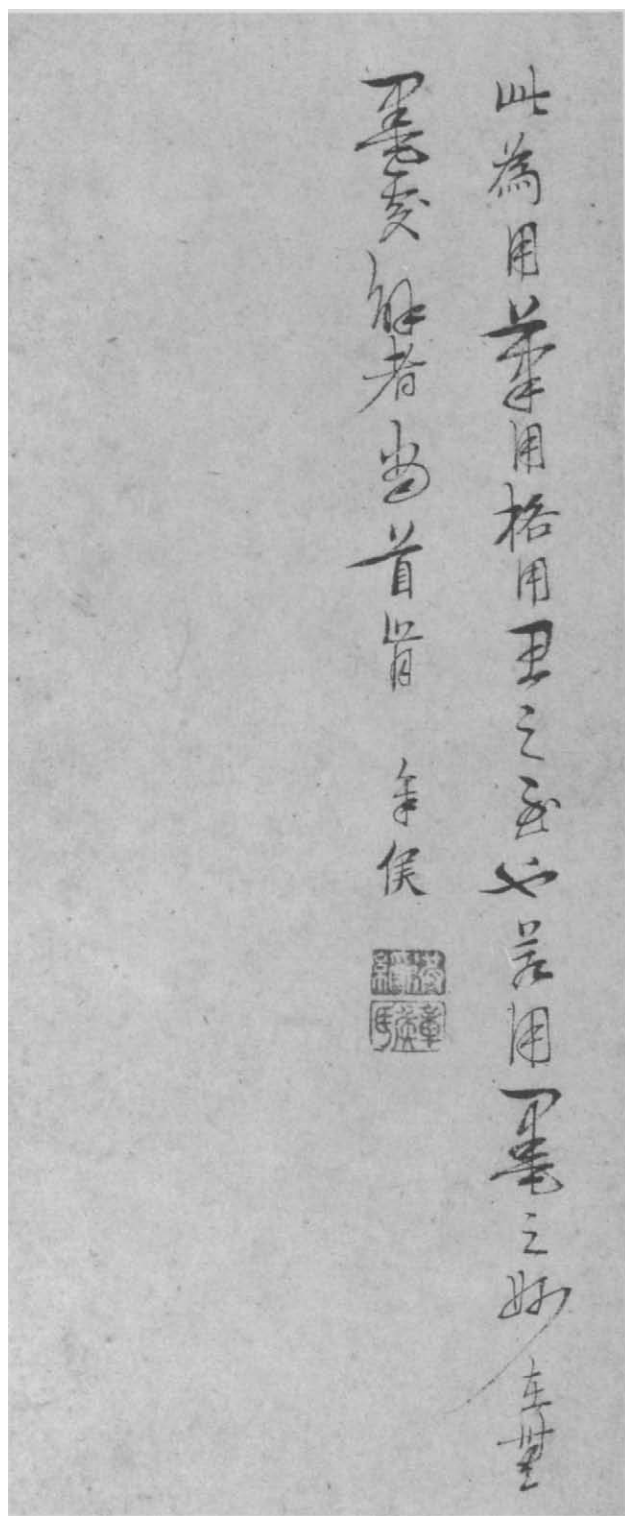 此為用筆用格用思之至也若用墨之妙在無
墨處解者當首肯 章侯